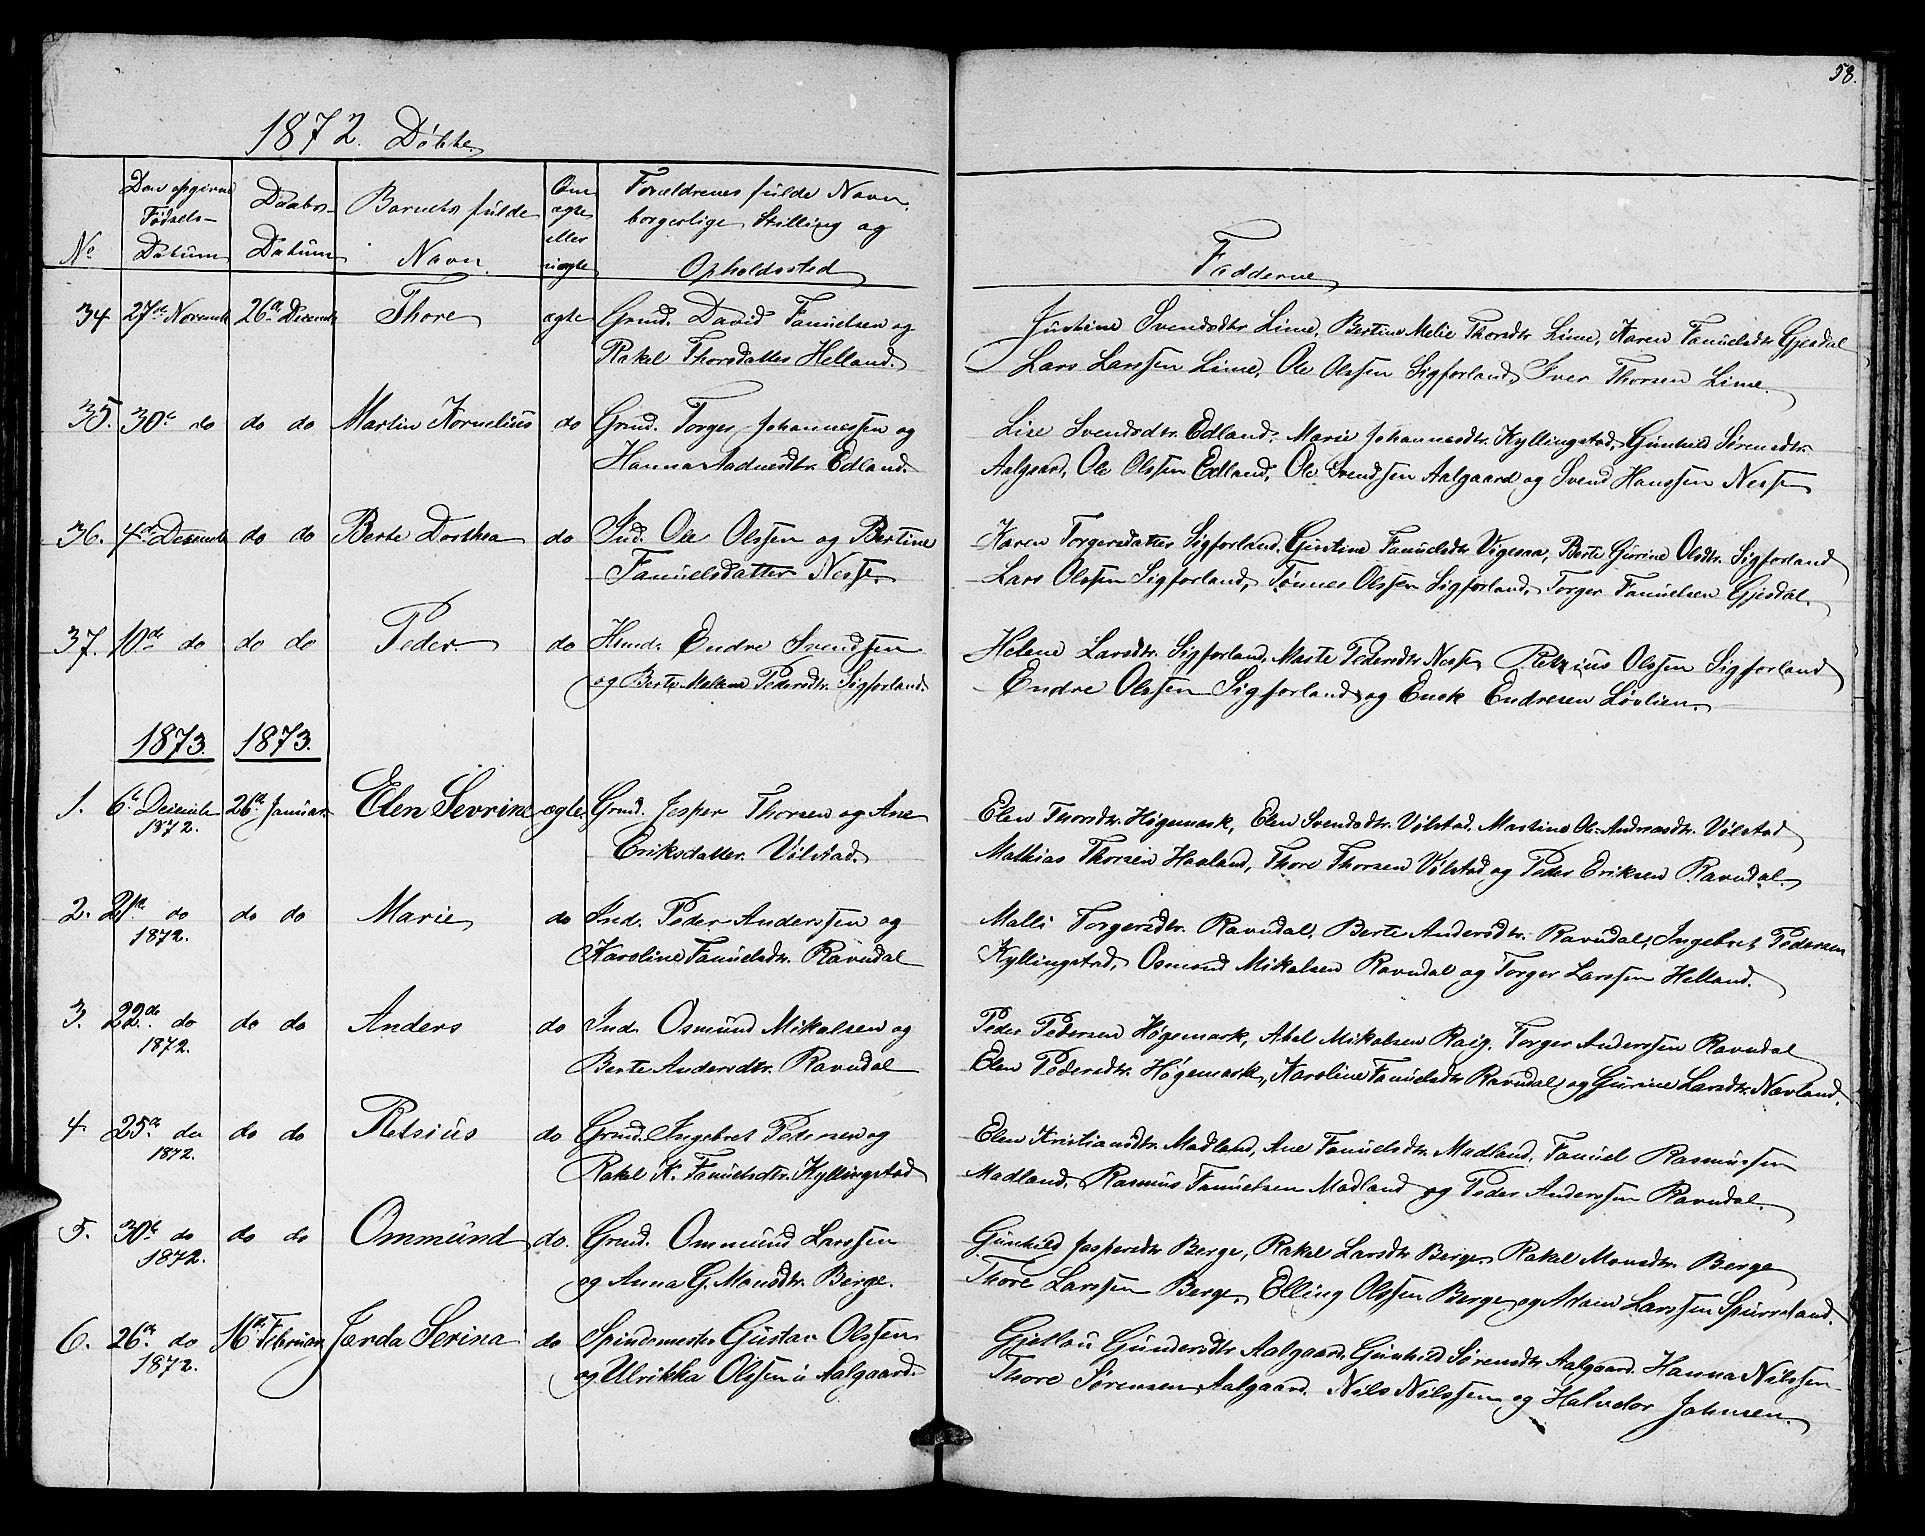 58.
1872. Døbte
No
Den opgivne Fødsels-Datum
Daabs-Datum
Barnets fulde Navn
Om ægte eller uægte
Forældrenes fulde Navn, borgerlige Stilling og Opholdssted
Fadderne
34 27de Novemb 26de Decemb Thore ægte Grmd. David Tanielsen og
Rakel Thorsdatter Helland.
Justine Svendsdtr Lime, Bertine Malie Thorsdtr Lime, Karen Tanielsdtr Gjesdal
Lars Larssen Lime, Ole Olssen Sigforland, Iver Thorsen Lime.
35. 30te do do do Martin Kornelius do Grmd. Torger Johannessen og
Hanna Aadnesdtr. Edland.
Lise Svendsdtr. Edland, Marie Johannesdtr. Kyllingstad, Gunhild Sørensdtr.
Aalgaard, Ole Olssen Edland, Ole Svendsen Aalgaard og Svend Hanssen Nesse
36. 4de Decemb do do Berte Dorthea do Ind. Ole Olssen og Bertine
Tanielsdatter Nesse.
Karen Torgersdatter Sigforland, Gustine Tanielsdtr Vigesaa, Berte Gurine Olsdtr. Sigforland
Lars Olssen Sigforland, Tønnes Olssen Sigforland, Torger Tanielsen Gjesdal.
37. 10de do do do Peder do Hmd. Endre Svendsen
og Berte Malene Pedersdtr. Sigforland.
Helene Larsdtr. Sigforland, Marte Pedersdtr Nesse, Retzius Olssen Sigforland
Endre Olssen Sigforland og Enok Endresen Løvlien.
1873. 1873.
1. 6te Decemb 1872. 26de Januar. Elen Sevrine ægte. Grmd. Jesper Thorsen og Ane
Eriksdatter. Vølstad.
Elen Thorsdtr. Høgemark, Elen Svendsdtr. Vølstad. Martine Ol. Andreasdtr. Vølstad
Mathias Thorsen Haaland, Thore Thorsen Vølstad og Peder Eriksen Ravndal.
2. 21de do 1872. do do Marie do Ind. Peder Anderssen og
Karoline Tanielsdtr. Ravndal
Malli Torgersdtr. Ravndal, Berte Andersdtr. Ravndal, Ingebret Pedersen
Kyllingstad, Osmund Mikalsen Ravndal og Torger Larssen Helland.
3. 22de do 1872. do do Anders do Ind. Osmund Mikalsen og
Berte Andersdtr. Ravndal
Peder Pedersen Høgemark, Abel Mikalsen Raig, Torger Anderssen Ravndal
Elen Pedersdtr. Høgemark, Karoline Tanielsdtr Ravndal og Gurine Larsdtr. Navland.
4 25de do 1872. do do Retsius do Grmd. Ingebret Pedersen og
Rakel K. Tanielsdtr. Kyllingstad
Elen Kristiansdtr. Madland, Ane Tanielsdtr. Madland, Taniel Rasmussen
Madland, Rasmus Tanielsen Madland og Peder Anderssen Ravndal.
5. 30te do 1872. do do Ommund do. Grmd. Ommund Larssen
og Anna G. Monsdtr. Berge.
Gunhild Jaspersdtr Berge, Rakel Larsdtr Berge, Rakel Monsdtr. Berge
Thore Larssen Berge, Elling Olssen Berge og Adam Larssen Spurreland.
6. 26de do 1872. 16de Februar Jærda Serina do Spindemester Gustav Olssen
og Ulrikka Olssen i Aalgaard.
Gjellou Gundersdtr Aalgaard, Gunhild Sørensdtr Aalgaard. Hanna Nilssen
Thore Sørensen Aalgaard. Nils Nilssen og Halvdor Johnsen.